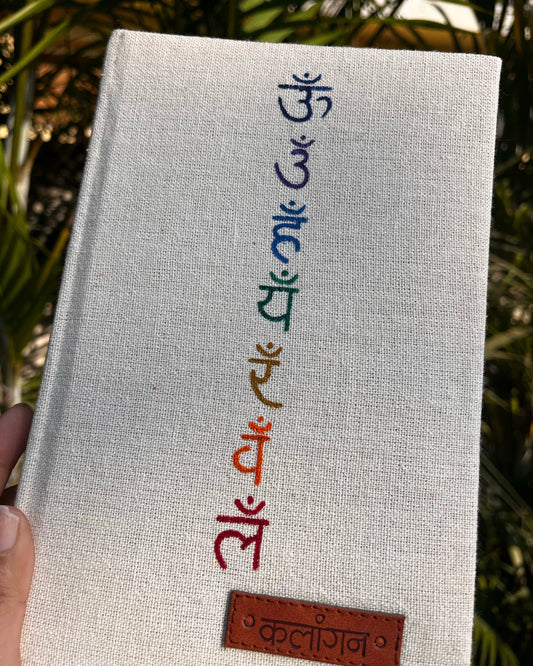 ऊँ
उँ
हँ
यँ
रँ
वँ
लँ
कलांगन